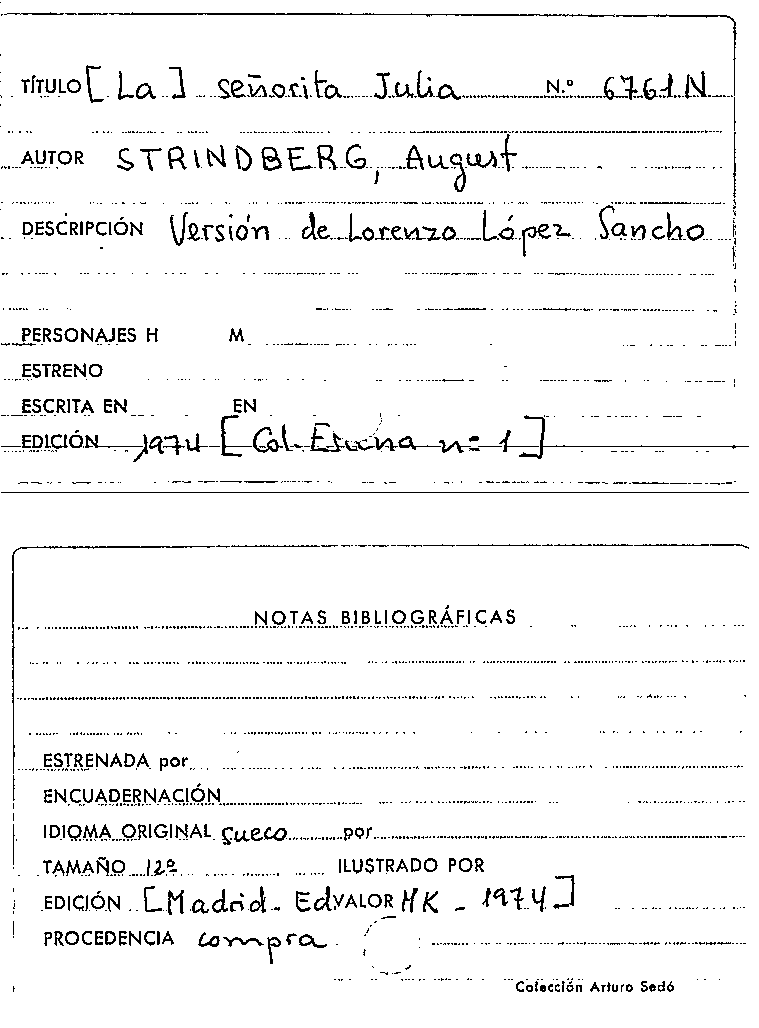 TÍTULO [La] señorita Julia N.º 6761N
AUTOR STRINDBERG, August
DESCRIPCIÓN Versión de Lorenzo López Sancho
PERSONAJES H M
ESTRENO
ESCRITA EN EN
EDICIÓN 1974 [Col. Escena nº 1]
NOTAS BIBLIOGRÁFICAS
ESTRENADA por
ENCUADERNACIÓN
IDIOMA ORIGINAL sueco por
TAMAÑO 12º ILUSTRADO POR
EDICIÓN [Madrid - Ed VALOR MK - 1974]
PROCEDENCIA compra
Colección Arturo Sedó